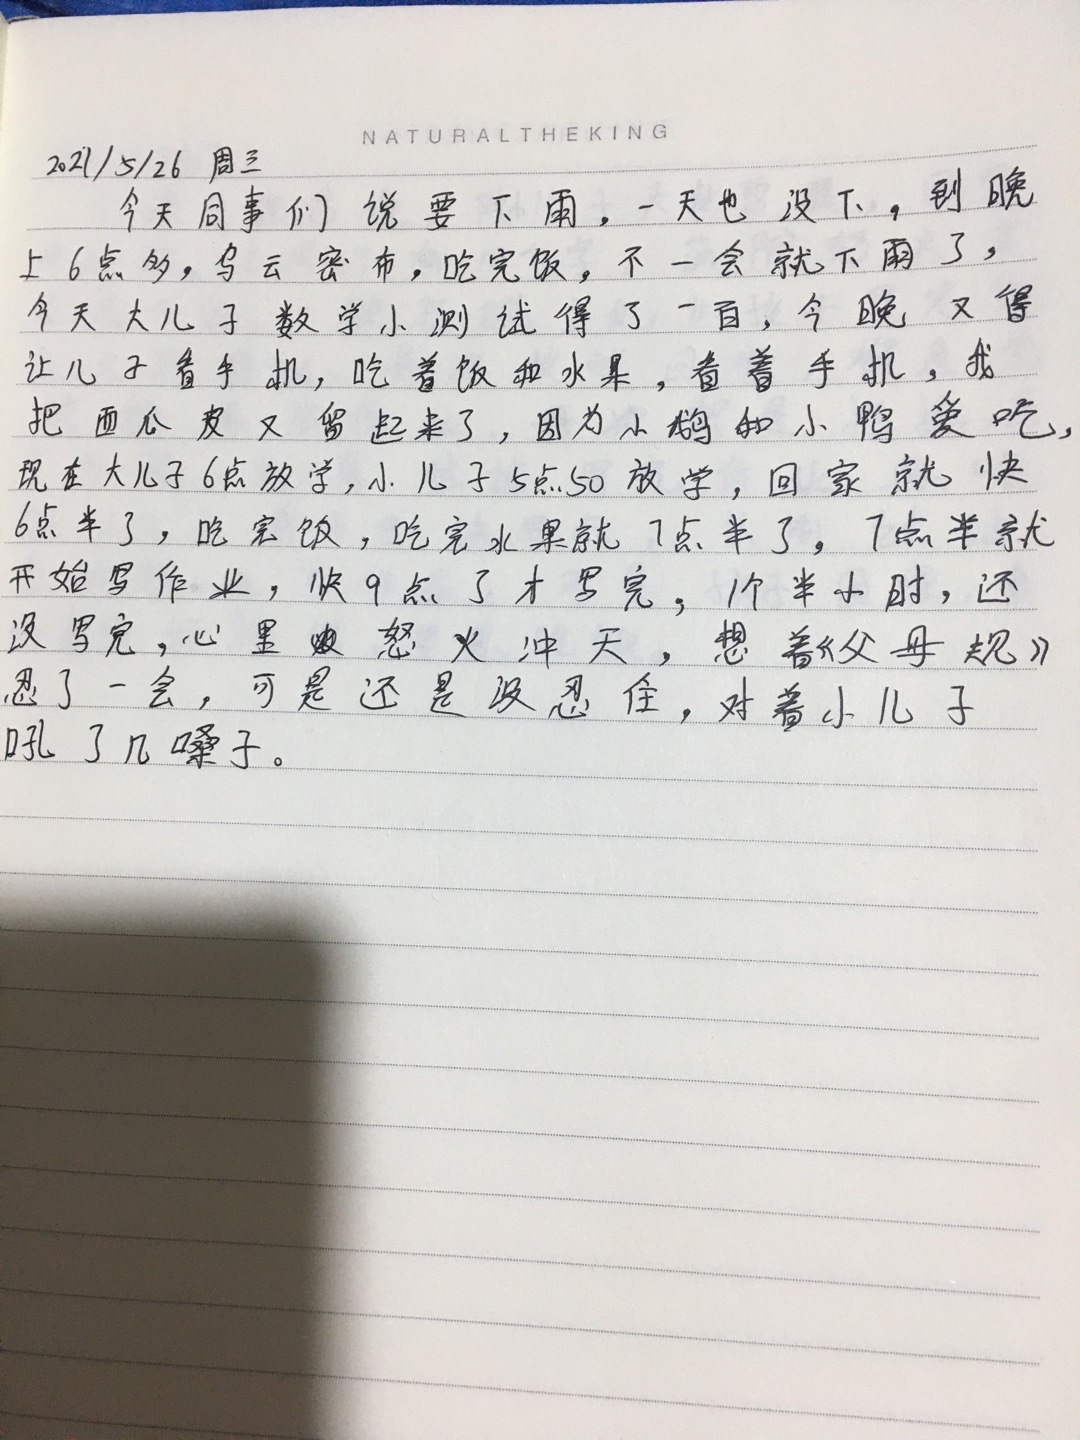 NATURALTHEKING
2021/5/26 周三
今天同事们说要下雨，一天也没下，到晚
上6点多，乌云密布，吃完饭，不一会就下雨了，
今天大儿子数学小测试得了一百，今晚又得
让儿子看手机，吃着饭和水果，看着手机，我
把西瓜皮又留起来了，因为小鹅和小鸭爱吃，
现在大儿子6点放学，小儿子5点50放学，回家就快
6点半了，吃完饭，吃完水果就7点半了，7点半就
开始写作业，快9点了才写完，1个半小时，还
没写完，心里怒火冲天，想着《父母规》
忍了一会，可是还是没忍住，对着小儿子
吼了几嗓子。